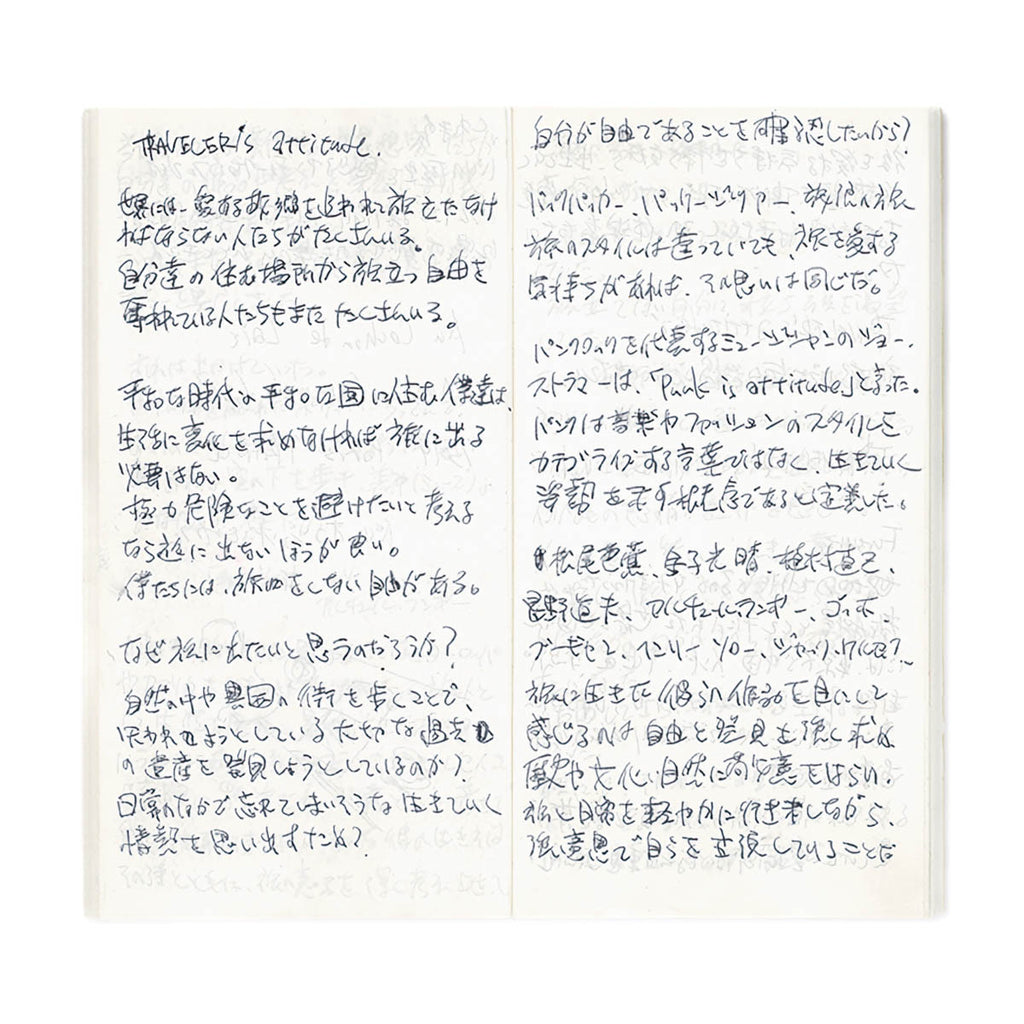 TRAVELER'S attitude.
世界には、愛する故郷を追われて旅立たなけ
ればならない人たちがたくさんいる。
自分達の住む場所から旅立つ自由を
奪われている人たちもまたたくさんいる。
平和な時代の平和な国に住む僕達は、
生活に変化を求めなければ旅に出る
必要はない。
極力危険なことを避けたいと考える
なら旅に出ないほうが良い。
僕たちには、旅をしない自由がある。
なぜ旅に出たいと思うのだろうか?
自然の中や異国の街を歩くことで、
失われようとしている大切な過去
の遺産を発見しようとしているのか?
日常のなかで忘れてしまいそうな生きていく
情熱を思い出すため?
自分が自由であることを確認したいから?
バックパッカー、パッケージツアー、放浪の旅
旅のスタイルは違っていても、旅を愛する
気持ちがあれば、その思いは同じだ。
パンクロックを代表するミュージシャンのジョー・
ストラマーは、「Punk is attitude」と言った。
パンクは音楽やファッションのスタイルを
カテゴライズする言葉ではなく、生きていく
姿勢を示す概念であると定義した。
松尾芭蕉、金子光晴、植村直己、
星野道夫、アルチュール・ランボー、ゴッホ、
ブーゼセン、ヘンリー・ソロー、ジャック・ケルアック
旅に生きた彼らの作品を目にして
感じるのは自由と発見を強く求め
歴史や文化、自然に敬意をはらい、
旅と日常を軽やかに行き来しながら、
強い意思で自らを立脚していることだ